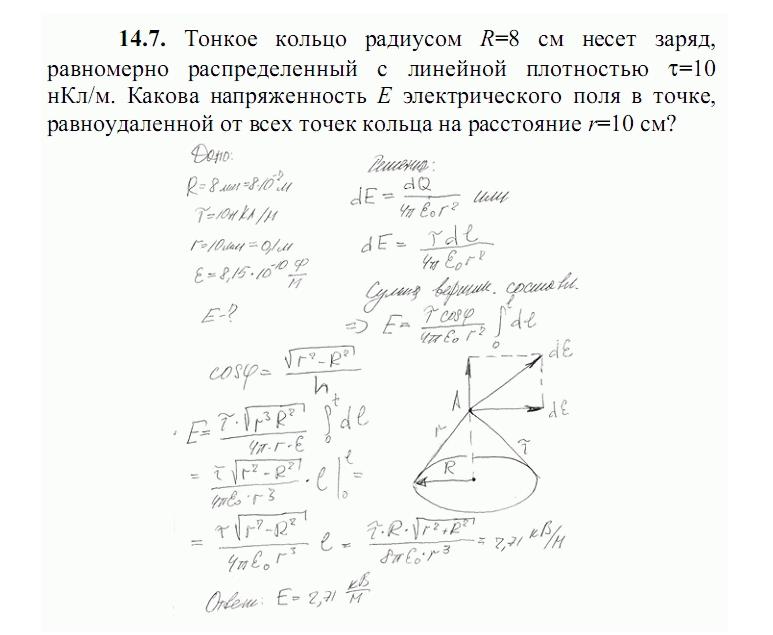 14.7. Тонкое кольцо радиусом R=8 см несет заряд,
равномерно распределенный с линейной плотностью τ=10
нКл/м. Какова напряженность E электрического поля в точке,
равноудаленной от всех точек кольца на расстояние r=10 см?
Дано:
R=8 мм=8·10⁻² м
τ=10нКл/м
r=10мм=0,1м
ε=8,15·10⁻¹⁰ Ф/м
E-?
Решение:
dE = dQ/(4π ε₀ r²) или
dE = τdl/(4π ε₀ r²)
Сумма вертик. составл.
=> E = τ cosφ/(4π ε₀ r²) ∫₀ˡ dl
cosφ = √(r²-R²)/h
E = τ·√(r³R²)/(4π·r·ε) ∫₀ᵗ dl
= τ√(r²-R²)/(4πε₀·r³) · l |₀ˡ =
= τ√(r²-R²)/(4πε₀ r³) l = τ·R·√(r²+R²)/(8πε₀·r³) = 2,71 кВ/м
Ответ: E = 2,71 кВ/м
dE
A
dE
r
τ
R